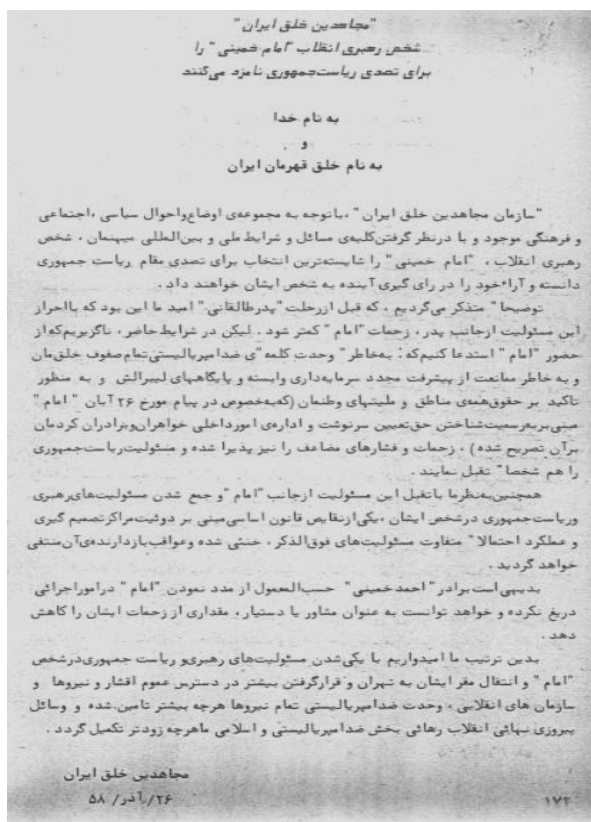 "مجاهدین خلق ایران"
شخص رهبری انقلاب "امام خمینی" را
برای تصدی ریاست‌جمهوری نامزد می‌کنند
به نام خدا
و
به نام خلق قهرمان ایران
"سازمان مجاهدین خلق ایران"، باتوجه به مجموعه‌ی اوضاع‌واحوال سیاسی، اجتماعی
و فرهنگی موجود و با درنظر گرفتن‌کلیه‌ی مسائل و شرایط ملی و بین‌المللی میهنمان، شخص
رهبری انقلاب، "امام خمینی" را شایسته‌ترین انتخاب برای تصدی مقام ریاست جمهوری
دانسته و آراء خود را در رای گیری آینده به شخص ایشان خواهند داد.
توضیحا" متذکر می‌گردیم، که قبل ازرحلت "پدرطالقانی" امید ما این بود که بااحراز
این مسئولیت ازجانب پدر، زحمات "امام" کمتر شود. لیکن در شرایط حاضر، ناگزیریم‌که از
حضور "امام" استدعا کنیم‌که: به‌خاطر" وحدت کلمه"ی ضدامپریالیستی‌تمام‌صفوف خلق‌مان
و به خاطر ممانعت از پیشرفت مجدد سرمایه‌داری وابسته و پایگاههای لیبرالش و به منظور
تاکید بر حقوق‌همه‌ی مناطق و ملیتهای وطنمان (که‌به‌خصوص در پیام مورخ ۲۶ آبان "امام"
مبنی‌بربه‌رسمیت‌شناختن حق‌تعیین سرنوشت و اداره‌ی امورداخلی خواهران‌وبرادران کردمان
برآن تصریح شده)، زحمات و فشارهای مضاعف را نیز پذیرا شده و مسئولیت‌ریاست‌جمهوری
را هم شخصا" تقبل نمایند.
همچنین‌به‌نظرما باتقبل این مسئولیت ازجانب "امام" و جمع شدن مسئولیت‌های‌رهبری
وریاست‌جمهوری درشخص ایشان، یکی‌ازنقایص قانون اساسی‌مبنی بر دوئیت‌مراکزتصمیم گیری
و عملکرد احتمالا" متفاوت مسئولیت‌های فوق‌الذکر، خنثی شده وعواقب‌بازدارنده‌ی‌آن‌منتفی
خواهد گردید.
بدیهی است‌برادر" احمدخمینی" حسب‌المعمول از مدد نمودن "امام" درامور‌اجرائی
دریغ نکرده و خواهد توانست به عنوان مشاور یا دستیار، مقداری از زحمات ایشان را کاهش
دهد.
بدین ترتیب ما امیدواریم با یکی‌شدن مسئولیت‌های رهبری‌و ریاست جمهوری‌درشخص
"امام" و انتقال مقر ایشان به تهران و قرارگرفتن بیشتر در دسترس عموم اقشار و نیروها و
سازمان های انقلابی، وحدت ضدامپریالیستی تمام نیروها هرچه بیشتر تامین‌شده و وسائل
پیروزی نهائی انقلاب رهائی بخش ضدامپریالیستی و اسلامی ماهرچه زودتر تکمیل گردد.
مجاهدین خلق ایران
۲۶/آذر/ ۵۸
۱۷۲